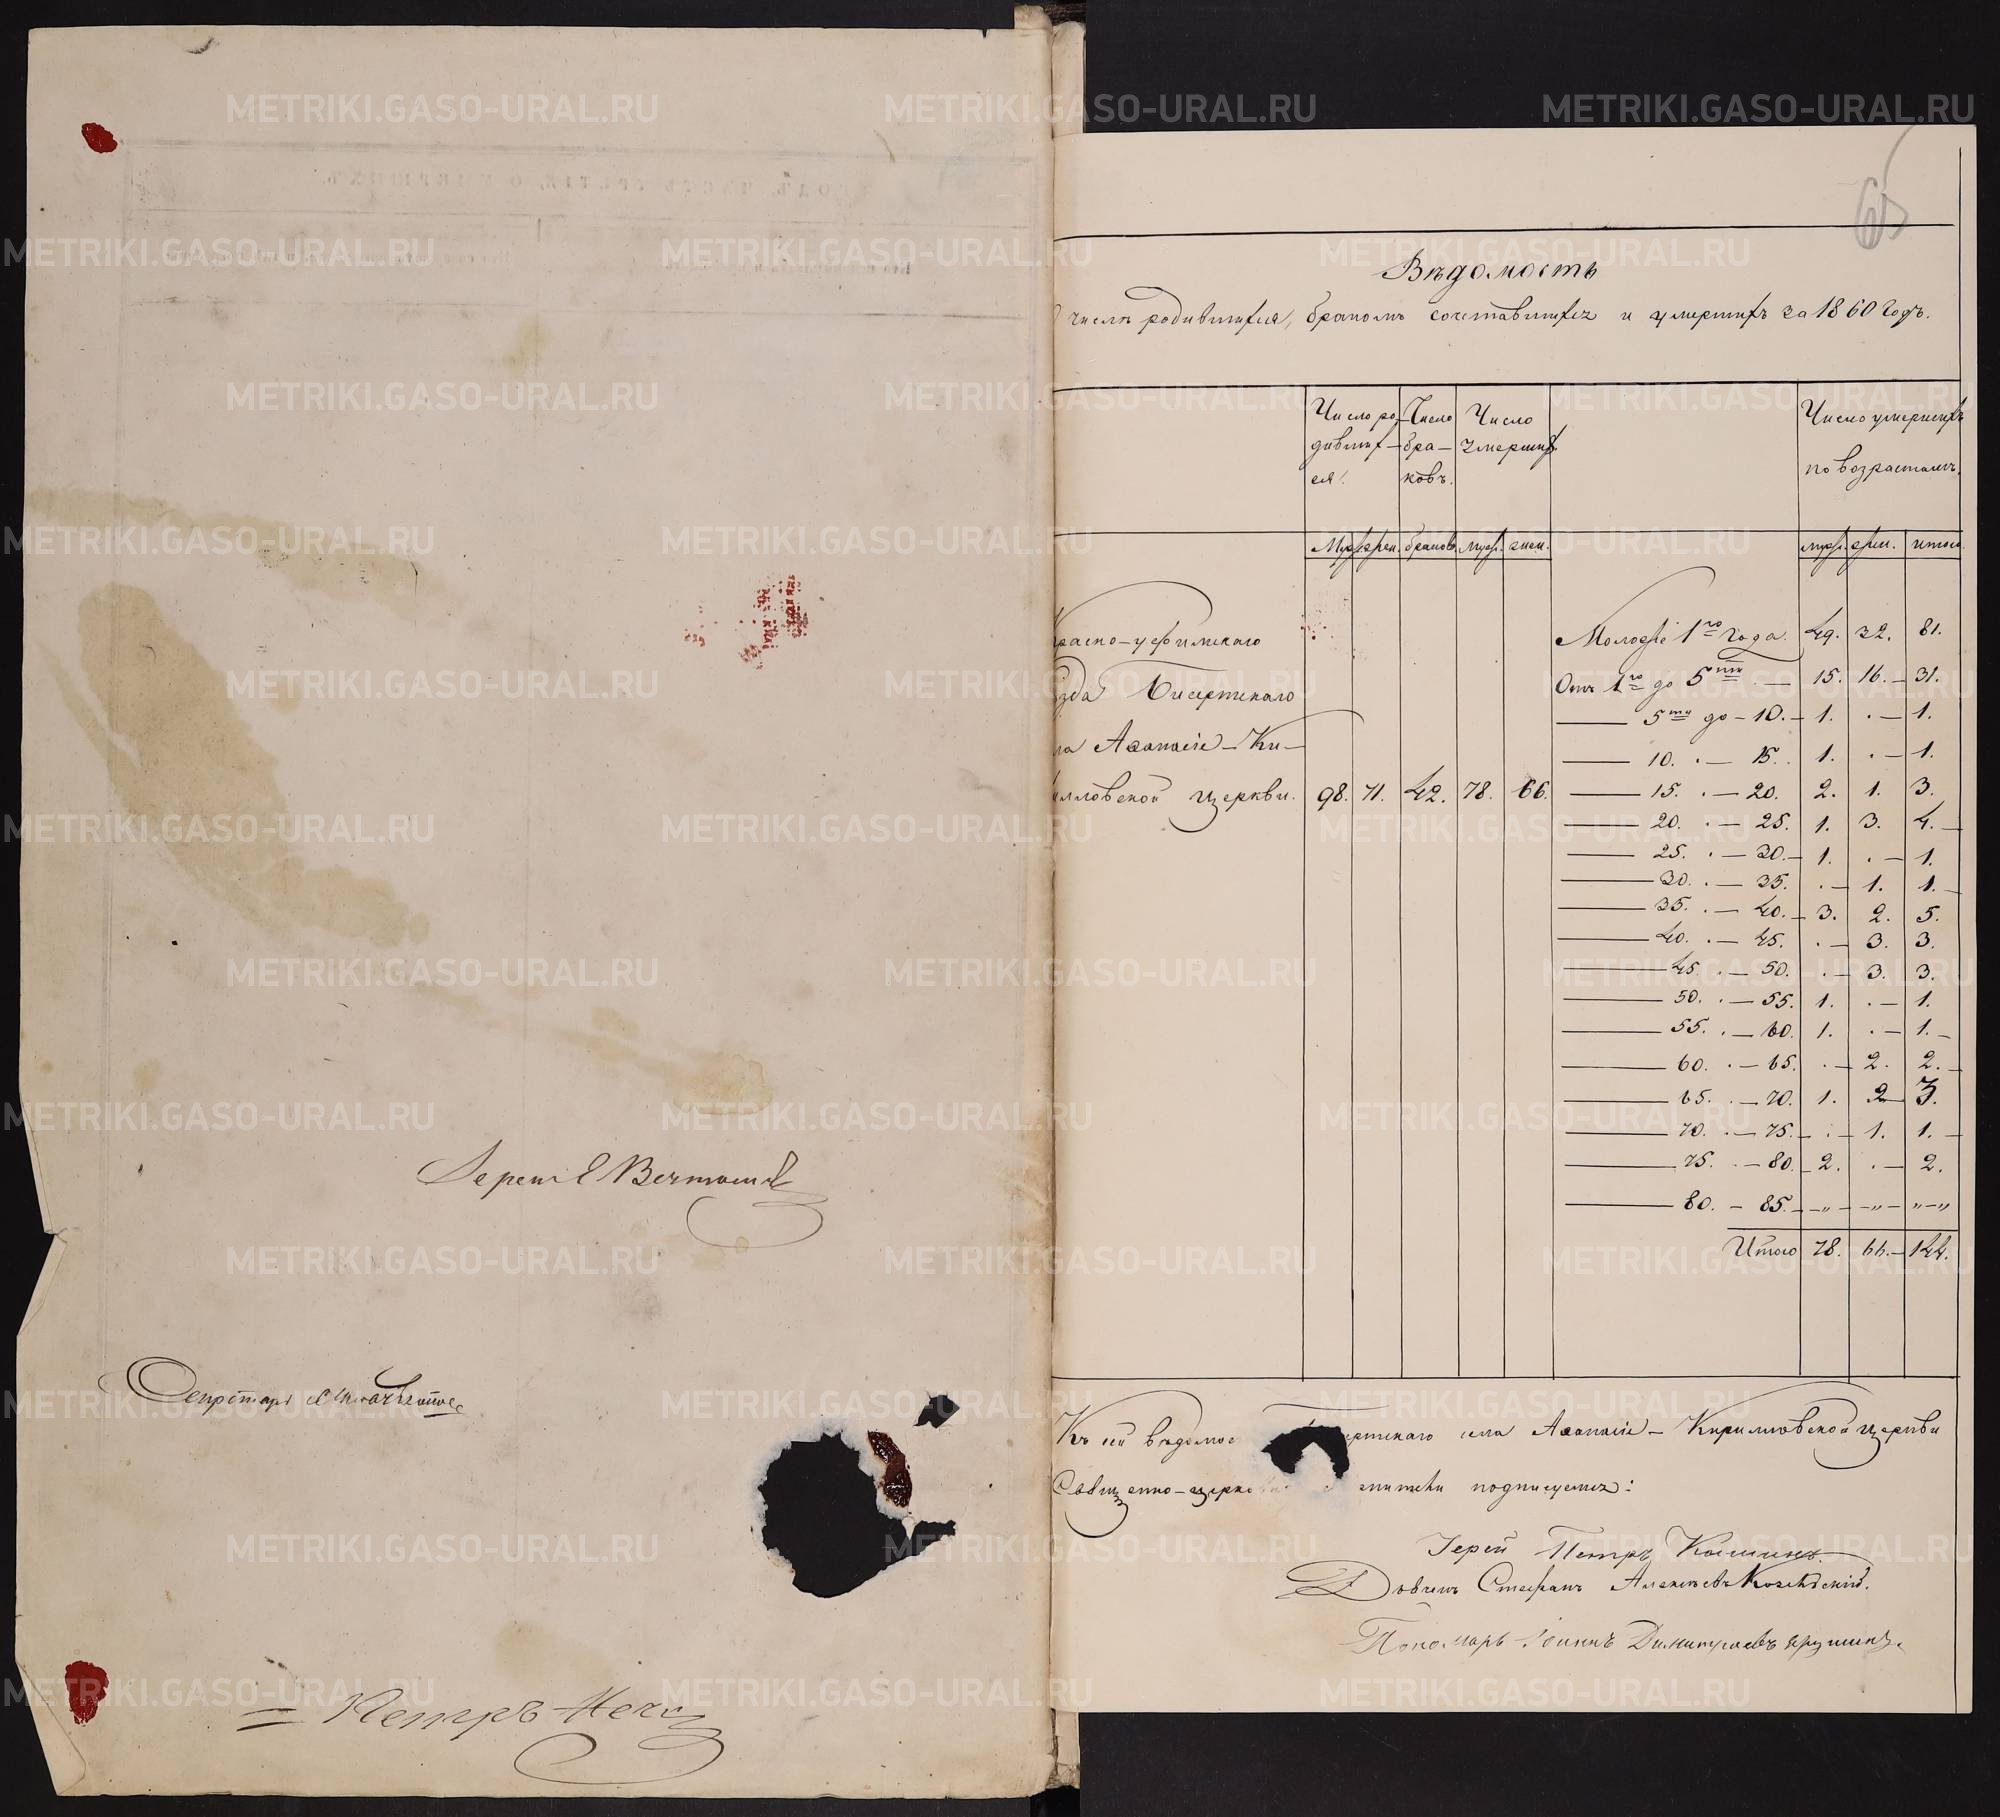 Секретарь
Петръ
65
Вѣдомость
О числѣ родившихся, бракомъ сочетавшихся и умершихъ за 1860 годъ.
Число родившихся. Число браковъ. Число умершихъ. Число умершихъ по возрастамъ.
Муж. жен. браковъ муж. жен. муж. жен. итого
Красно-уфимскаго
Бисертскаго
Аѳанасіе-Ки-
рилловской церкви. 98. 71. 42. 78. 66.
Моложе 1го года. 49. 32. 81.
Отъ 1го до 5ти — 15. 16. — 31.
— 5ти до — 10. — 1. . — 1.
— 10. . — 15. . 1. . — 1.
— 15. . — 20. 2. 1. 3.
— 20. . — 25. 1. 3. 4. —
— 25. . — 30. — 1. . — 1.
— 30. . — 35. . — 1. 1. —
— 35. . — 40. — 3. 2. 5.
— 40. . — 45. . — 3. 3.
— 45. . — 50. . — 3. 3.
— 50. . — 55. 1. . — 1.
— 55. . — 60. 1. . — 1. —
— 60. . — 65. . — 2. 2. —
— 65. . — 70. 1. 2 3.
— 70. . — 75. — . — 1. 1. —
— 75. . — 80. — 2. . — 2.
— 80. — 85. — „ — „ — „ — „
Итого 78. 66. — 144.
Къ сей вѣдомос ертскаго села Аѳанасіе-Кирилловской церкви
Священно-церков подписуемся:
Іерей Петръ Кошинъ.
Дьячекъ Стефанъ Алексѣевъ
Пономарь Іоаннъ Димитріевъ
METRIKI.GASO-URAL.RU